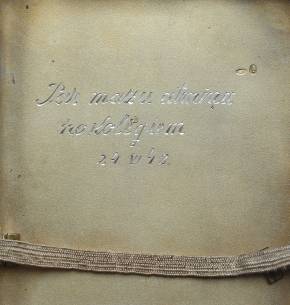 Par mazu atmiņu
no kolēģiem
24 VI 42